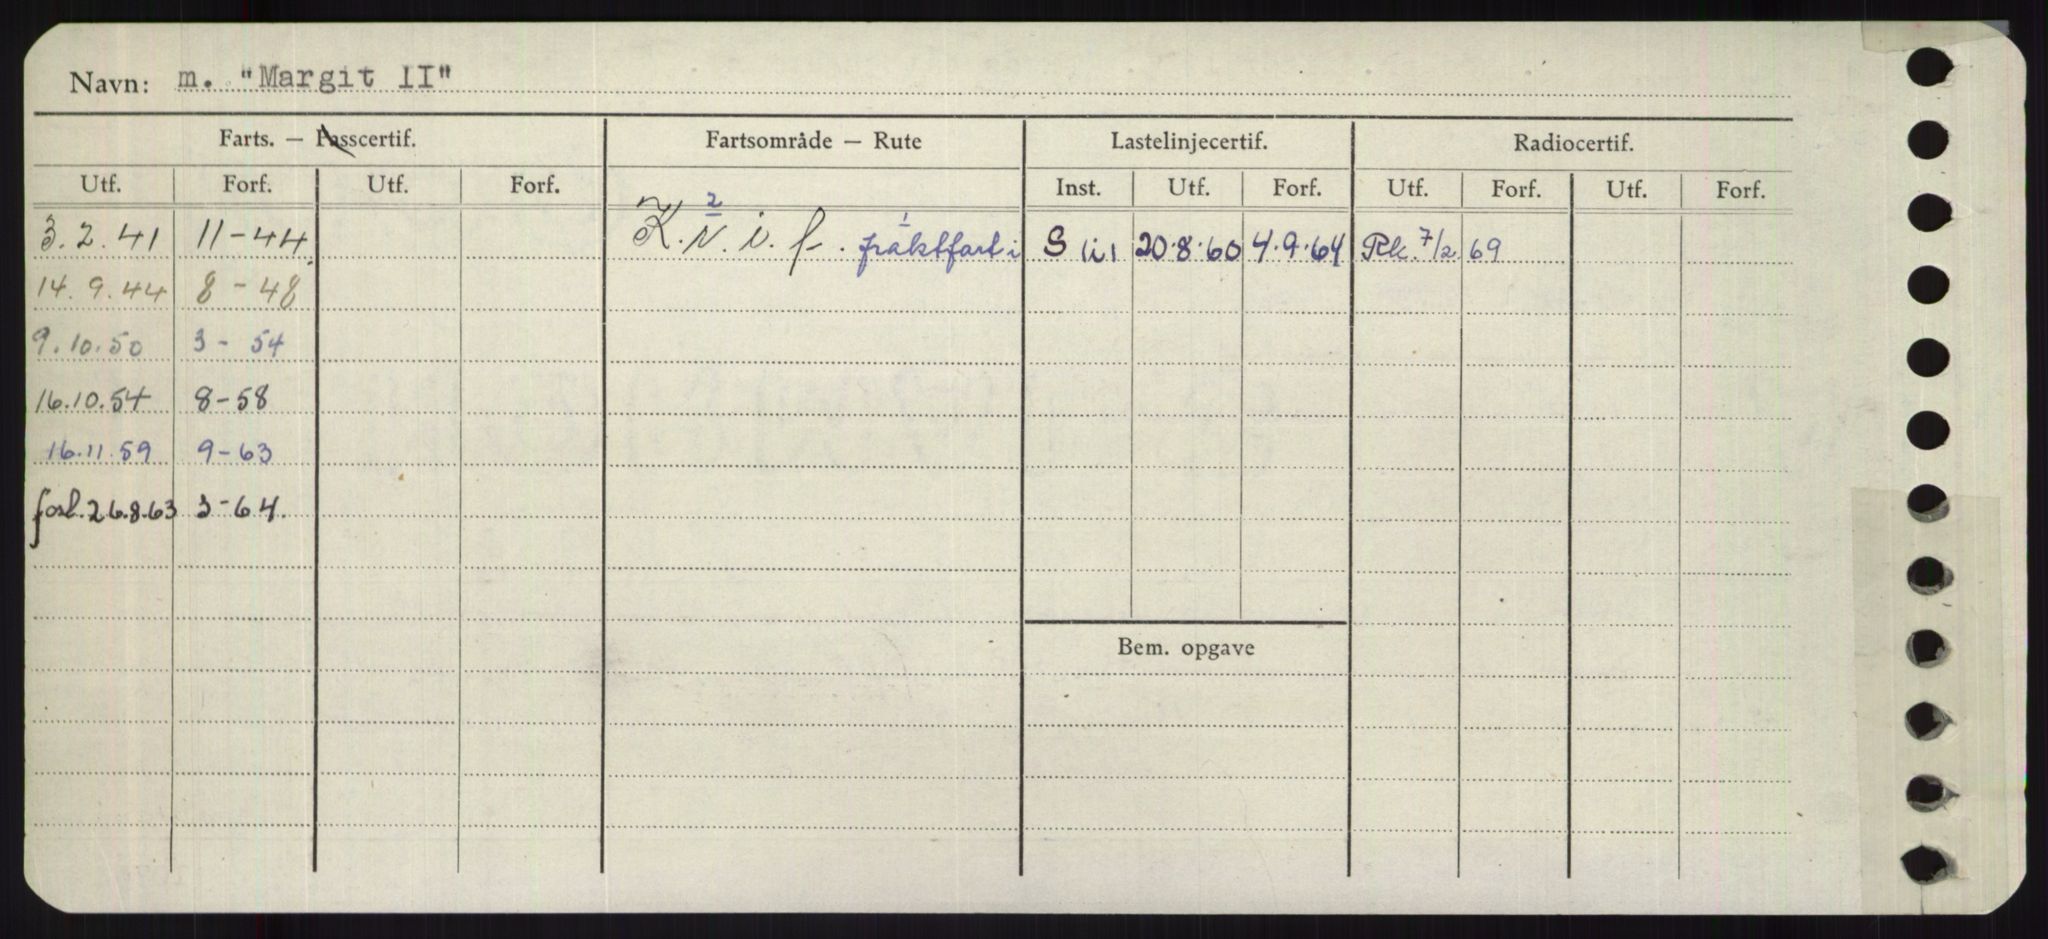 Navn: m. "Margit II"
Farts. — Passcertif. Fartsområde — Rute Lastelinjecertif. Radiocertif.
Utf. Forf. Utf. Forf. Inst. Utf. Forf. Utf. Forf. Utf. Forf.
3.2.41 11-44 K. N. i. f. 2 1 fraktfart i S 20.8.60 4.9.64 Rk. 7/2 69
14.9.44 8-48
9.10.50 3-54
16.10.54 8-58
16.11.59 9-63
forl. 26.8.63 3-64.
Bem. opgave